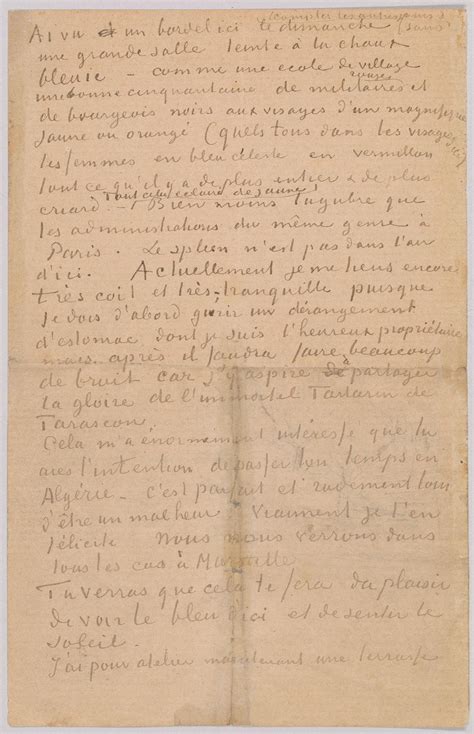 (compter les
Ai vu un bordel ici le dimanche (sans
une grande salle teinte à la chaux
bleuie – comme une ecole de village
une bonne cinquantaine de militaires rouges et
de bourgeois noirs aux visages d'un magnifique
jaune ou orangé (quels tons dans les visages
les femmes en bleu céleste en vermillon
tout ce qu'il y a de plus entier & de plus
Tout cela éclairé de jaune
criard. – Bien moins lugubre que
les administrations du même genre à
Paris. Le spleen n'est pas dans l'air
d'ici. Actuellement je me tiens encore
très coit et très tranquille puisque
je dois d'abord guérir un dérangement
d'estomac dont je suis l'heureux propriétaire
mais après il faudra faire beaucoup
de bruit car j'y aspire à partager
la gloire de l'immortel Tartarin de
Tarascon.
Cela m'a énormement interessé que tu
aies l'intention de passer ton temps en
Algérie – c'est parfait et rudement loin
d'être un malheur Vraiment je t'en
félicite Nous nous verrons dans
tous les cas à Marseille
Tu verras que cela te fera du plaisir
de voir le bleu d'ici et de sentir le
soleil.
J'ai pour atelier maintenant une terrasse